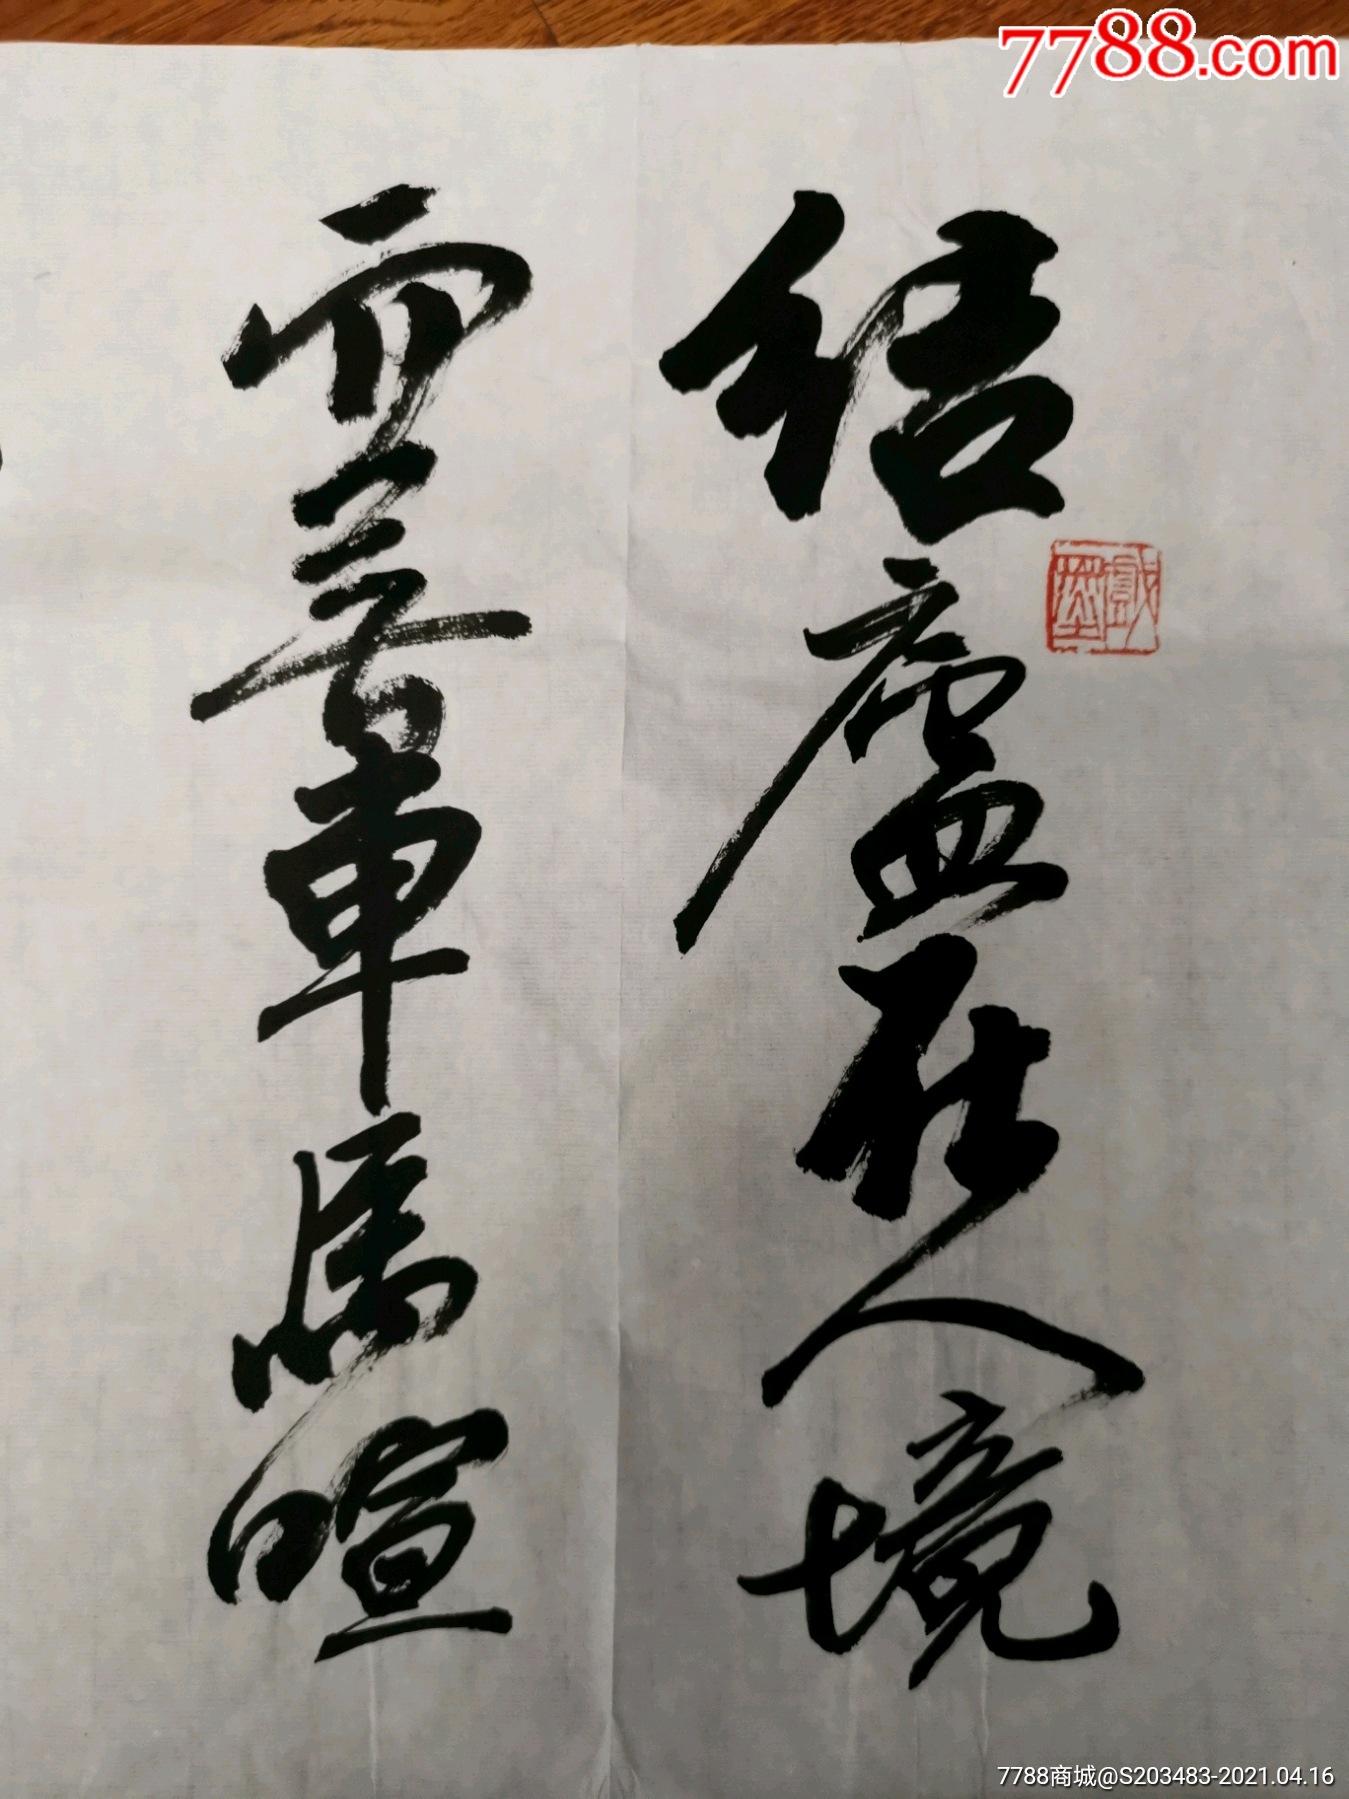 7788.com
结廬在人境
戲墨
而无車馬喧
7788商城@S203483-2021.04.16